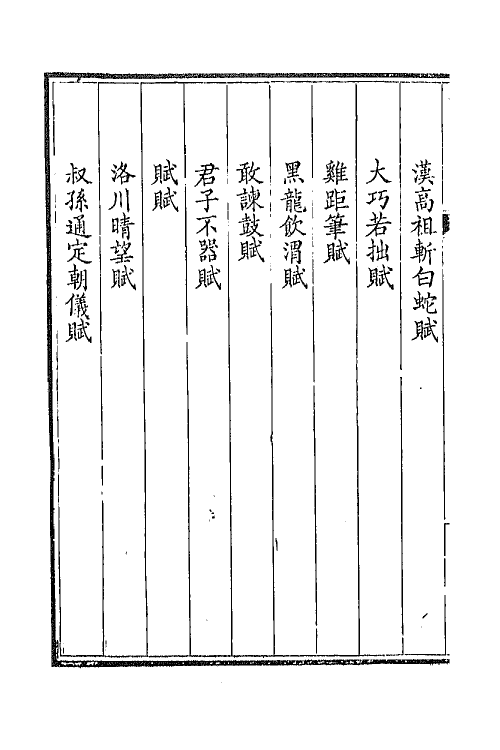 漢高祖斬白蛇賦
大巧若拙賦
雞距筆賦
黑龍飲渭賦
敢諫鼓賦
君子不器賦
賦賦
洛川晴望賦
叔孫通定朝儀賦